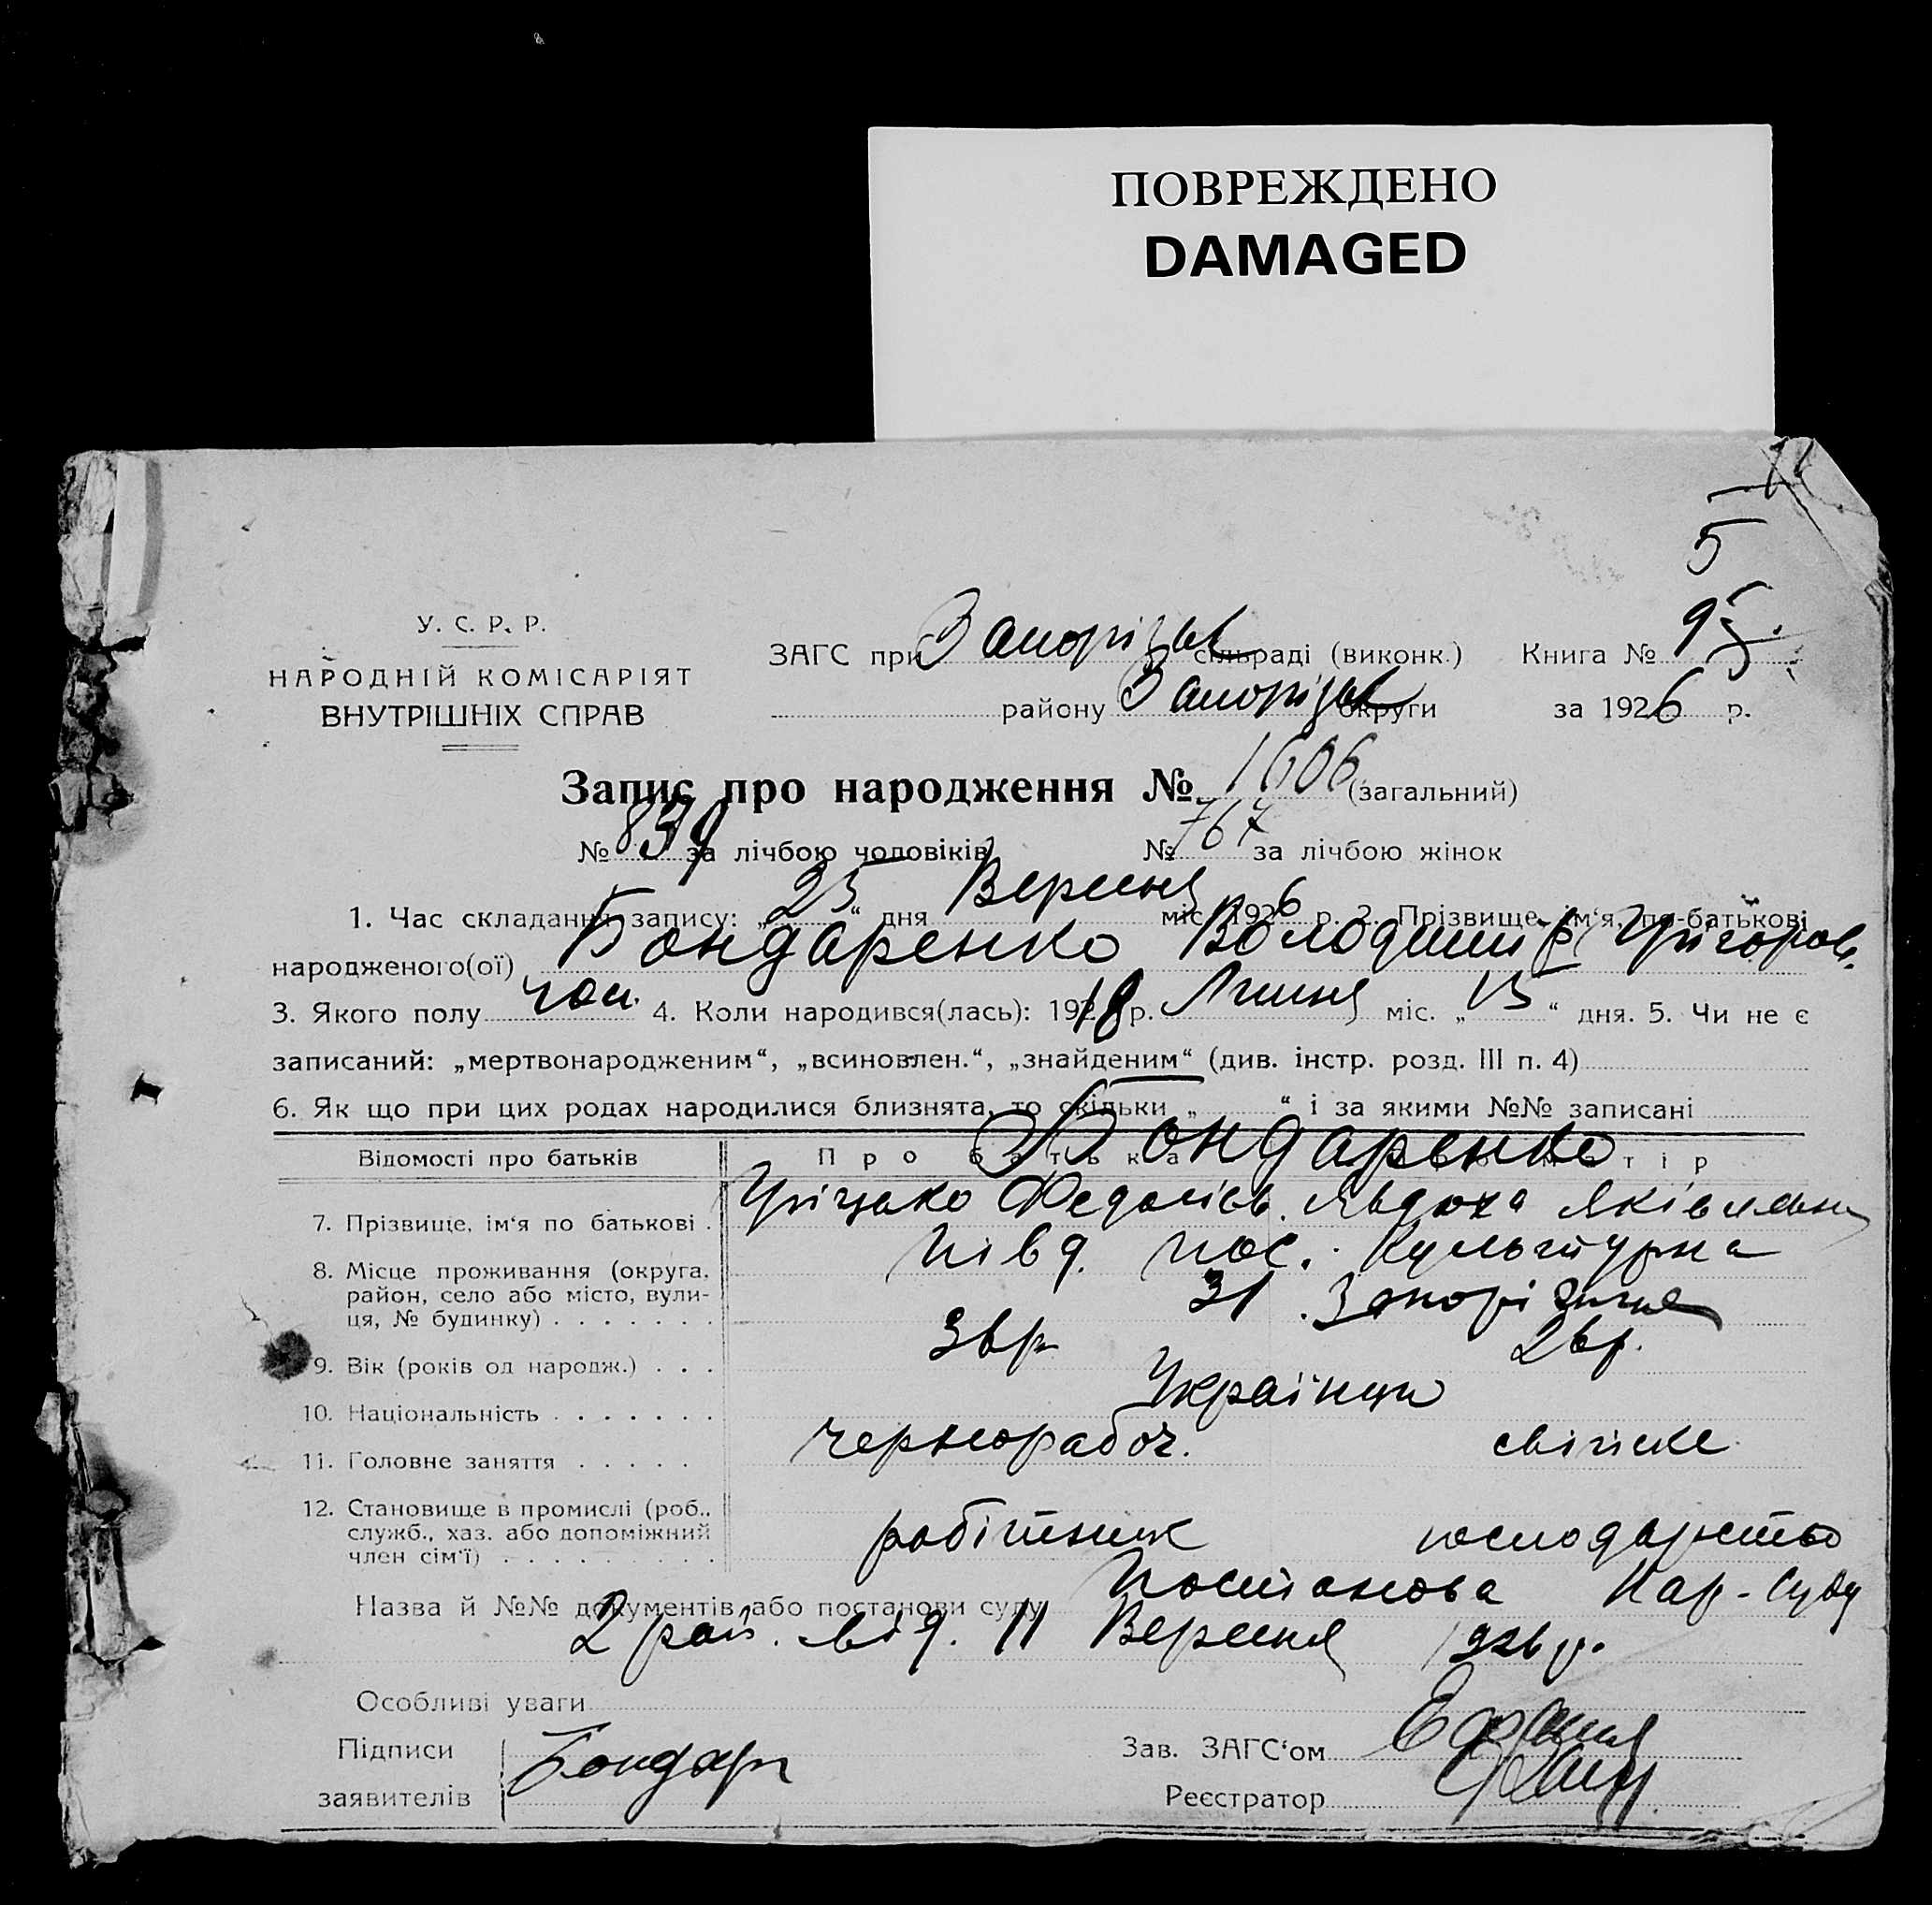 ПОВРЕЖДЕНО
DAMAGED
5
У. С. Р. Р.
НАРОДНІЙ КОМІСАРІЯТ
ВНУТРІШНІХ СПРАВ
ЗАГС при Запорізьк сільраді (виконк.) Книга №
району Запорізьк округи за 1926 р.
Запис про народження № 1606 (загальний)
№ 839 за лічбою чоловіків № 767 за лічбою жінок
1. Час складання запису: „25“ дня Вересня міс. 1926 р. 2. Прізвище, ім‘я, по-батькові
народженого(ої) Бондаренко Володимир Григоров.
3. Якого полу чол. 4. Коли народився(лась): 1918 р. Липня міс. „15“ дня. 5. Чи не є
записаний: „мертвонародженим“, „всиновлен.“, „знайденим“ (див. інстр. розд. III п. 4)
6. Як що при цих родах народилися близнята, то скільки „ “ і за якими №№ записані
Відомості про батьків Про батька Про матір
Бондаренко
7. Прізвище, ім‘я по батькові . Гріцько Федосієв. Явдоха Яківлевна
8. Місце проживання (округа, район, село або місто, вулиця, № будинку) . . . . . . . Півд. пос. Культурна
31 Запоріжжя
9. Вік (років од народж.) . . . 3 вр. 2 вр.
10. Національність . . . . . . . Українці
11. Головне заняття . . . . . чернорабоч. свійське
12. Становище в промислі (роб., служб., хаз. або допоміжний член сім‘ї) . . . . . . . . . робітник господарство
Назва й №№ документів або постанови суду Постанова Нар-Суду
2 рай. від. 11 Вересня 1926 р.
Особливі уваги
Підписи
заявителів Бондар
Зав. ЗАГС‘ом
Реєстратор